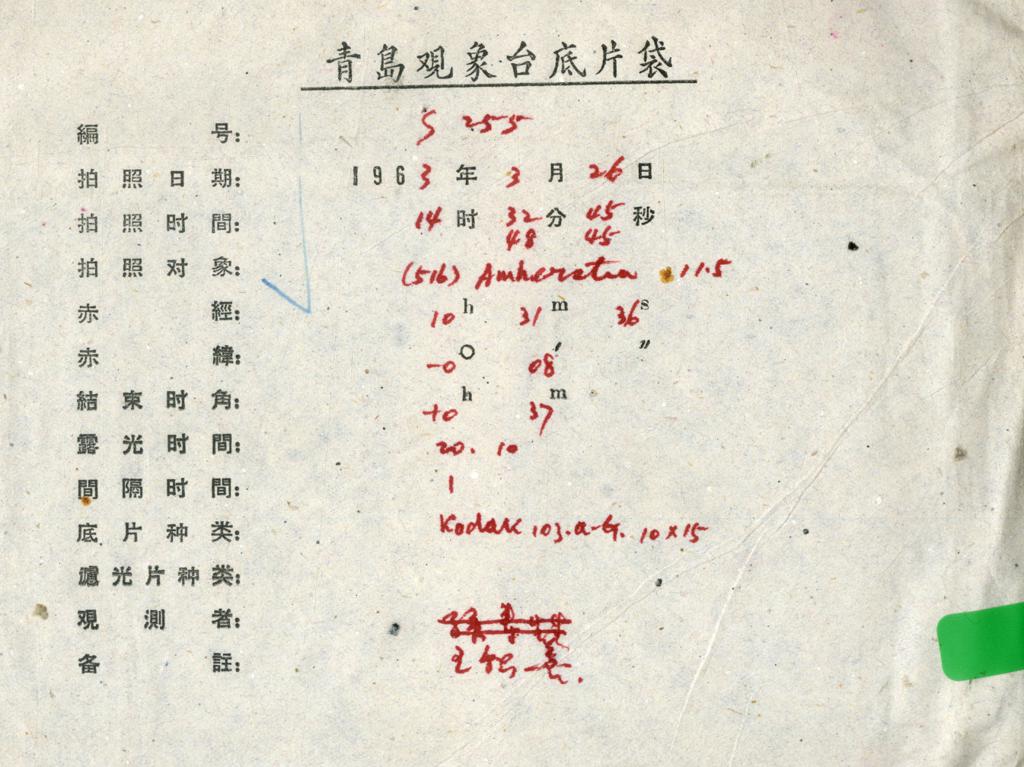 青島观象台底片袋
編 号: S 255
拍照日期: 1963年 3月 26日
拍照时間: 14时 32分 45秒
48 45
拍照对象: (516) Amherstia 11.5
赤 經: 10h 31m 36s
赤 緯: -0° 08′ ″
結束时角: +0h 37m
露光时間: 20. 10
間隔时間: 1
底片种类: Kodak 103.a-G. 10×15
濾光片种类:
观測者:
备註: